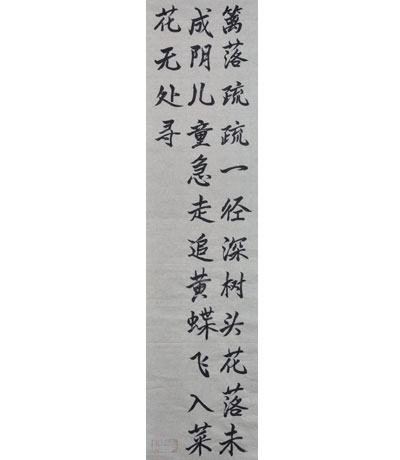 篱落疏疏一径深树头花落未
成阴儿童急走追黄蝶飞入菜
花无处寻